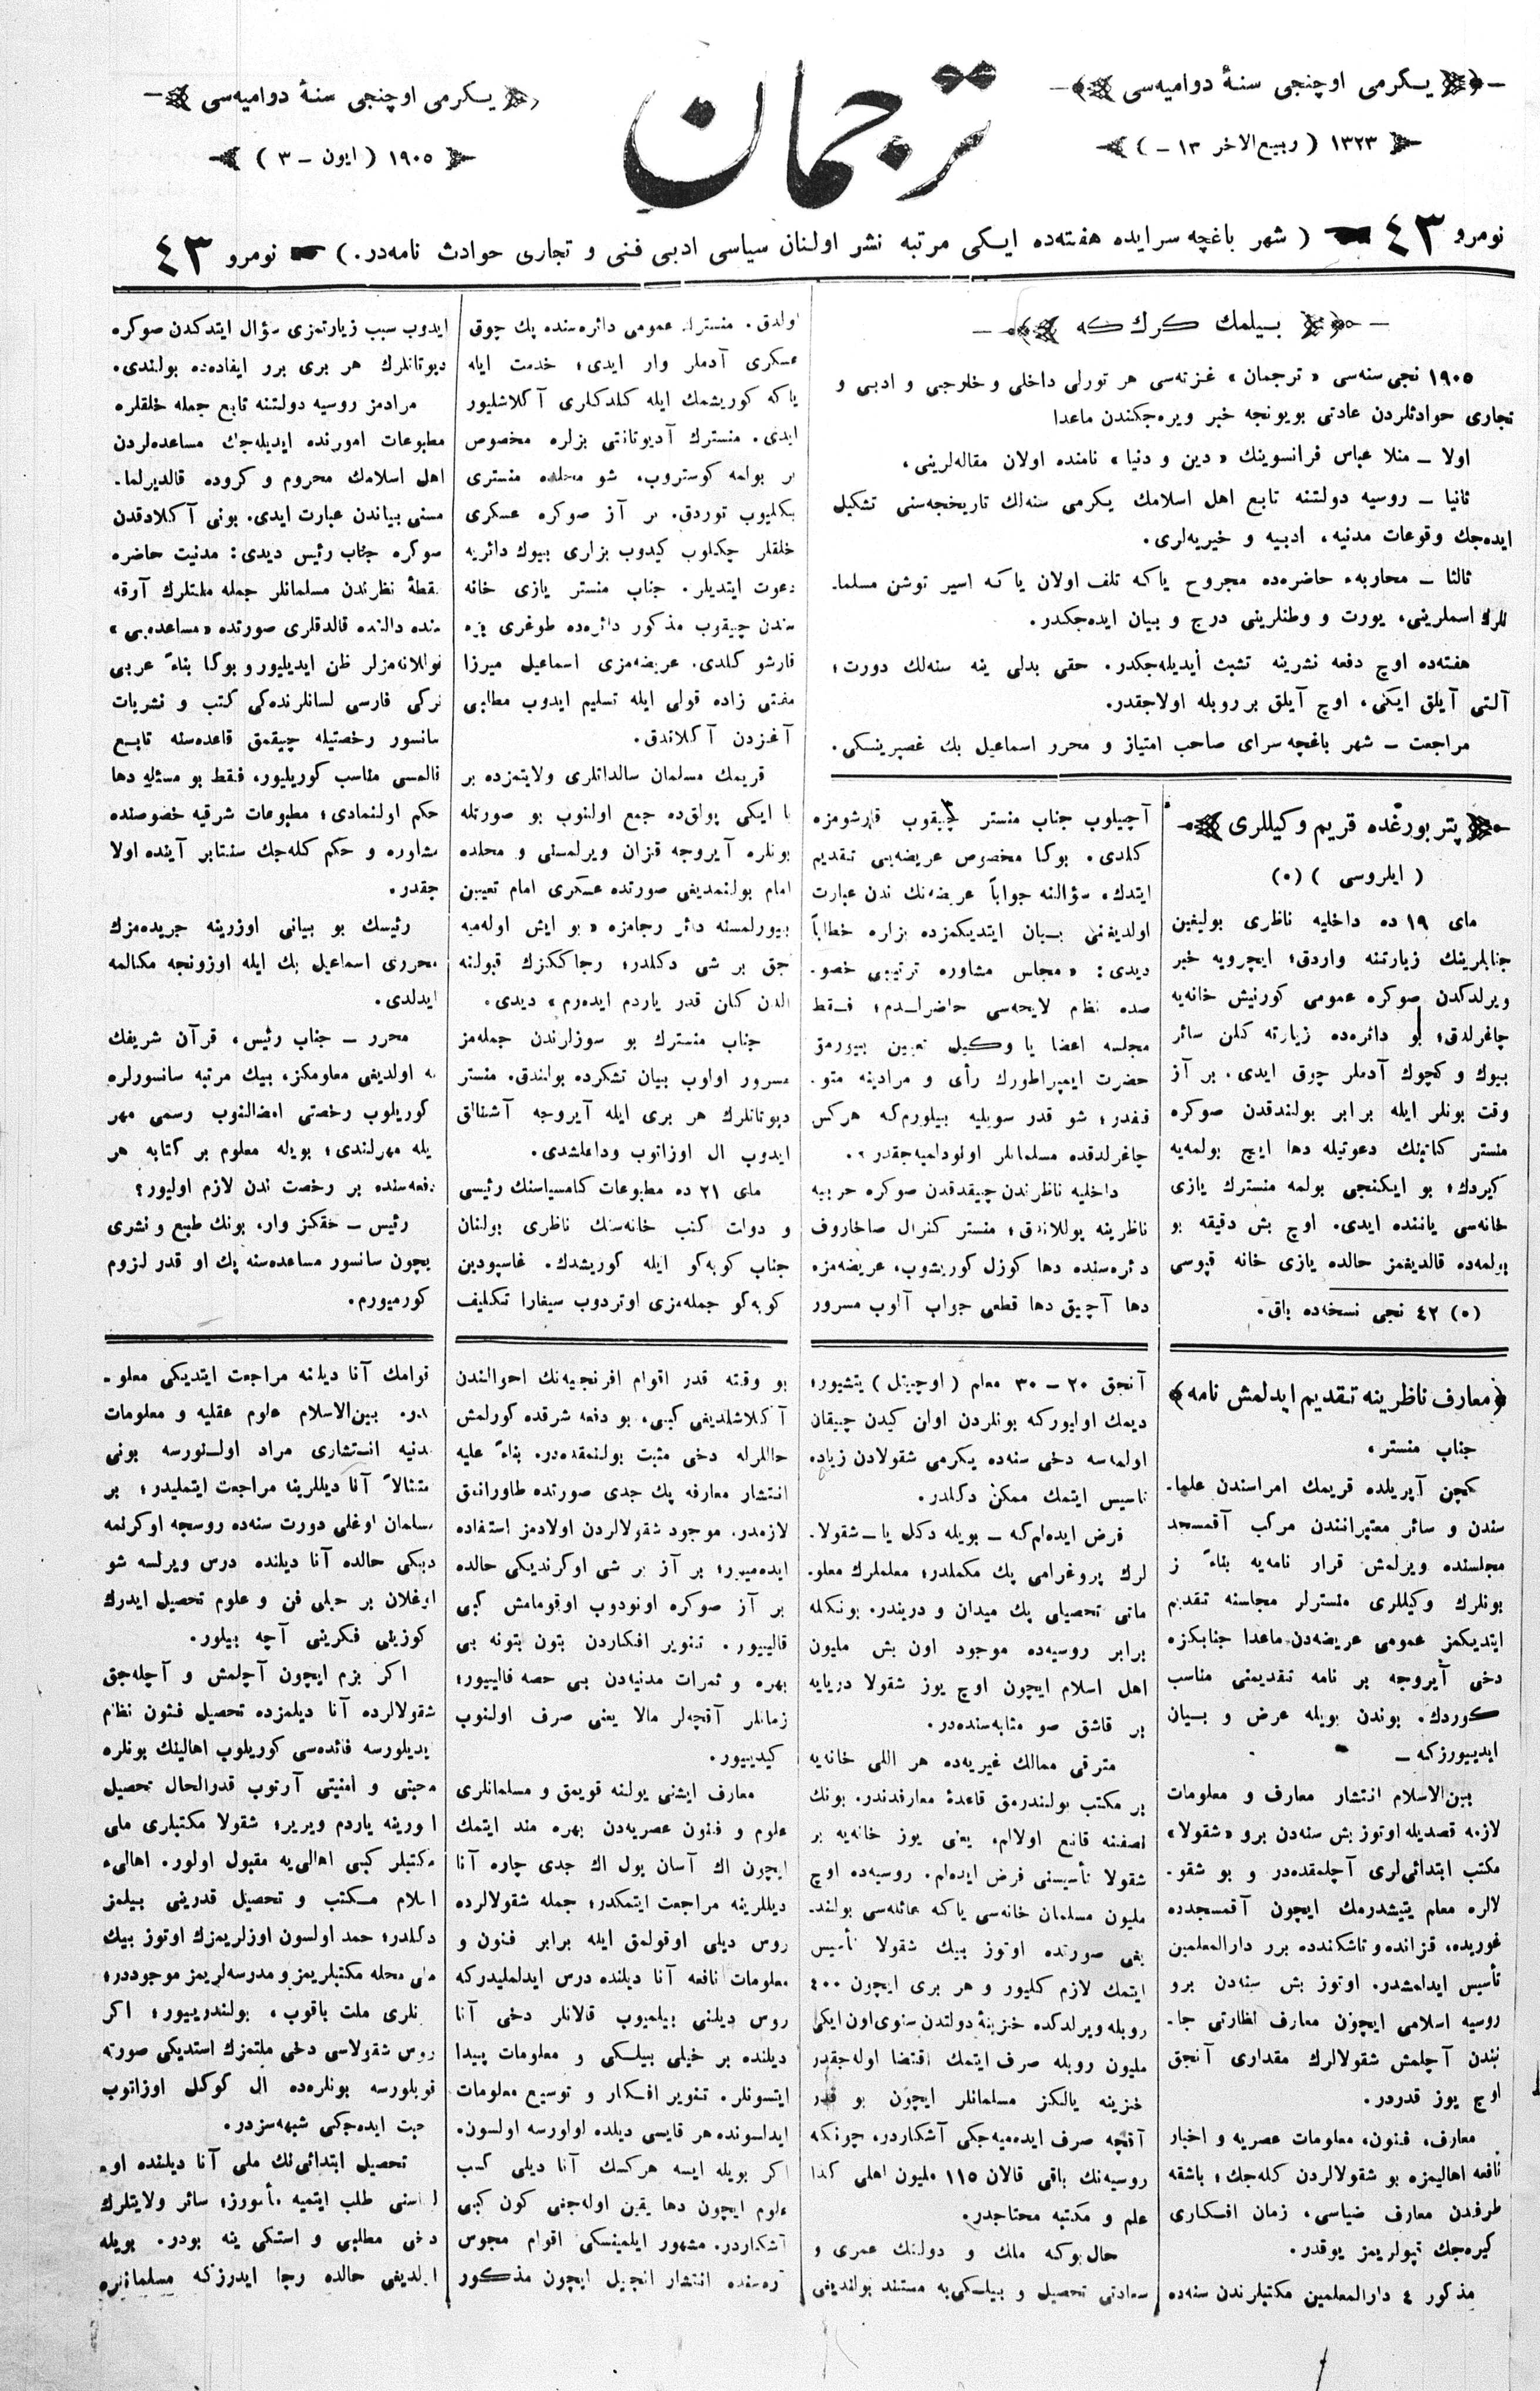 يكرمی اوچنجی سنۀ دواميه‌سی
١٣٢٣ ( ربيع الاخر ١٣ – )
ترجمان
يكرمی اوچنجی سنۀ دواميه‌سی
١٩٠٥ ( ايون – ٣ )
نومرو ٤٣ ( شهر باغچه سرايده هفته‌ده ايكی مرتبه نشر اولنان سياسی ادبی فنی و تجاری حوادث نامه‌در. ) نومرو ٤٣
بيلمك كرك كه
١٩٠٥ نجی سنه‌سی « ترجمان » غزته‌سی هر تورلی داخلی و خارجی و ادبی و
تجاری حوادثلردن عادتی بويونجه خبر ويره‌جكندن ماعدا
اولا – منلا عباس فرانسوينك « دين و دنيا » نامنده اولان مقاله‌لرينی،
ثانيا – روسيه دولتنه تابع اهل اسلامك يكرمی سنه‌لك تاريخچه‌سنی تشكيل
ايده‌جك وقوعات مدنيه، ادبيه و خيريه‌لری.
ثالثا – محاربهء حاضره‌ده مجروح ياكه تلف اولان ياكه اسير توشن مسلما-
نلرك اسملرينی، يورت و وطنلرينی درج و بيان ايده‌جكدر.
هفته‌ده اوچ دفعه نشرينه تشبث ايديله‌جكدر. حقی بدلی ينه سنه‌لك دورت؛
آلتی آيلق ايكی، اوچ آيلق بر روبله اولاجقدر.
مراجعت – شهر باغچه سرای صاحب امتياز و محرر اسماعيل بك غصپرينسكی.
پتربورغده قريم وكيللری
( ايلروسی ) (٥)
مای ١٩ ده داخليه ناظری بوليغين
جنابلرينك زيارتنه واردق؛ ايچرويه خبر
ويرلدكدن صوكره عمومی كورنيش خانه‌يه
چاغرلدق؛ بو دائره‌ده زيارته كلن سائر
بيوك و كچوك آدملر چوق ايدی. بر آز
وقت بونلر ايله برابر بولندقدن صوكره
منستر كتابتنك دعوتيله دها ايچ بولمه‌يه
كيردك؛ بو ايكنجی بولمه منسترك يازی
خانه‌سی ياننده ايدی. اوچ بش دقيقه بو
بولمه‌ده قالديغمز حالده يازی خانه قپوسی
(٥) ٤٢ نجی نسخه‌ده باق.
آچيلوب جناب منستر چيقوب قارشومزه
كلدی. بوكا مخصوص عريضه‌يی تقديم
ايتدك. سؤالنه جواباً عريضه‌نك ندن عبارت
اولديغنی بيان ايتديكمزده بزلره خطاباً
ديدی: « مجلس مشاوره ترتيبی خصو-
صده نظام لايحه‌سی حاضرلدم؛ فقط
مجلسه اعضا يا وكيل تعيين بيورمق
حضرت ايمپراطورك رأی و مرادينه متو-
قفدر؛ شو قدر سويليه بيلورم‌كه هركس
چاغرلدقده مسلمانلر اونودلميه‌جقدر ».
داخليه ناظرندن چيقدقدن صوكره حربيه
ناظرينه يوللاندق؛ منستر كنرال صاخاروف
دائره‌سنده دها كوزل كوريشوب، عريضه‌مزه
دها آچيق دها قطعی جواب آلوب مسرور
اولدق. منسترك عمومی دائره‌سنده پك چوق
عسكری آدملر وار ايدی؛ خدمت ايله
ياكه كوريشمك ايله كلدكلری آكلاشليور
ايدی. منسترك آديوتانتی بزلره مخصوص
بر بولمه كوستروب، شو محلده منستری
بكليوب توردق. بر آز صوكره عسكری
خلقلر چكلوب كيدوب بزاری بيوك دائريه
دعوت ايتديلر. جناب منستر يازی خانه
سندن چيقوب مذكور دائره‌ده طوغری بزه
قارشو كلدی. عريضه‌مزی اسماعيل ميرزا
مفتی زاده قولی ايله تسليم ايدوب مطالبی
آغزدن آكلاتدق.
قريمك مسلمان سالداتلری ولايتمزده بر
يا ايكی پولق‌ده جمع اولنوب بو صورتله
بونلره آيروجه قزان ويرلمسنی و محلده
امام بولنمديغی صورتده عسكری امام تعيين
بيورلمسنه دائر رجامزه « بو ايش اوله‌ميه
جق بر شی دكلدر؛ رجاككزك قبولنه
الدن كلن قدر ياردم ايده‌رم » ديدی.
جناب منسترك بو سوزلرندن جمله‌مز
مسرور اولوب بيان تشكرده بولندق. منستر
ديوتانلرك هر بری ايله آيروجه آشنالق
ايدوب ال اوزاتوب وداعلشدی.
مای ٢١ ده مطبوعات كاميسياسنك رئيسی
و دولت كتب خانه‌سنك ناظری بولنان
جناب كوبه‌كو ايله كوريشدك. غاسپودين
كوبه‌كو جمله‌مزی اوتردوب سيغارا تكليف
ايدوب سبب زيارتمزی سؤال ايتدكدن صوكره
ديوتانلرك هر بری برر افاده‌ده بولندی.
مرادمز روسيه دولتنه تابع جمله خلقلره
مطبوعات امورنده ايديله‌جك مساعده‌لردن
اهل اسلامك محروم و كروده قالديرلما-
مسنی بياندن عبارت ايدی. بونی آكلادقدن
صوكره جناب رئيس ديدی: مدنيت حاضره
نقطۀ نظرندن مسلمانلر جمله ملتلرك آرقه
سنده دالنده قالدقلری صورتده « مساعده‌يی »
قوللانه‌مزلر ظن ايديليور و بوكا بناءً عربی
تركی فارسی لسانلرنده‌كی كتب و نشريات
سانسور رخصتيله چيقمق قاعده‌سنه تابع
قالمسی مناسب كوريليور. فقط بو مسئله دها
حكم اولنمادی؛ مطبوعات شرقيه خصوصنده
مشاوره و حكم كله‌جك سنتابر آينده اولا
جقدر.
رئيسك بو بيانی اوزرينه جريده‌مزك
محرری اسماعيل بك ايله اوزونجه مكالمه
ايدلدی.
محرر – جناب رئيس، قرآن شريفك
نه اولديغی معلومكز. بيك مرتبه سانسورلره
كوريلوب رخصتی امضالنوب رسمی مهر
ايله مهرلندی؛ بويله معلوم بر كتابه هر
دفعه‌سنده بر رخصت ندن لازم اوليور؟
رئيس – حقكز وار. بونك طبع و نشری
ايچون سانسور مساعده‌سنه پك او قدر لزوم
كورميورم.
معارف ناظرينه تقديم ايدلمش نامه
جناب منستر،
كچن آپريلده قريمك امراسندن علما-
سندن و سائر معتبرانندن مركب آقمسجد
مجلسنده ويرلمش قرار نامه‌يه بناءً ز
بونلرك وكيللری منسترلر مجلسنه تقديم
ايتديكمز عمومی عريضه‌دن ماعدا جنابكزه
دخی آيروجه بر نامه تقديمنی مناسب
كوردك. بوندن بويله عرض و بيان
ايدييورزكه –
بين‌الاسلام انتشار معارف و معلومات
لازمه قصديله اوتوز بش سنه‌دن برو « شقولا »
مكتب ابتدائی‌لری آچلمقده‌در و بو شقو-
لالره معلم يتيشدرمك ايچون آقمسجدده
غوريده، قزانده و تاشكندده برر دارالمعلمين
تأسيس ايدلمشدر. اوتوز بش سنه‌دن برو
روسيه اسلامی ايچون معارف نظارتی جا-
نبندن آچلمش شقولالرك مقداری آنجق
اوچ يوز قدردر.
معارف، فنون، معلومات عصريه و اخبار
نافعه اهاليمزه بو شقولالردن كله‌جك؛ باشقه
طرفدن معارف ضياسی، زمان افكاری
كيره‌جك قپولريمز يوقدر.
مذكور ٤ دارالمعلمين مكتبلرندن سنه‌ده
آنجق ٢٠ – ٣٠ معلم ( اوچيتل ) يتشيور؛
ديمك اوليوركه بونلردن اولن كيدن چيقان
اولماسه دخی سنه‌ده يكرمی شقولادن زياده
تاسيس ايتمك ممكن دكلدر.
فرض ايده‌لم‌كه – بويله دكل يا – شقولا-
لرك پروغرامی پك مكملدر؛ معلملرك معلو-
ماتی تحصيلی پك ميدان و دريندر. بونكله
برابر روسيه‌ده موجود اون بش مليون
اهل اسلام ايچون اوچ يوز شقولا دريايه
بر قاشق صو مثابه‌سنده‌در.
مترقی ممالك غيريه‌ده هر اللی خانه‌يه
بر مكتب بولندرمق قاعدۀ معارفدندر. بونك
نصفنه قانع اولالم، يعنی يوز خانه‌يه بر
شقولا تأسيسنی فرض ايده‌لم. روسيه‌ده اوچ
مليون مسلمان خانه‌سی ياكه عائله‌سی بولند-
يغی صورتده اوتوز بيك شقولا تأسيس
ايتمك لازم كليور و هر بری ايچون ٤٠٠
روبله ويرلدكده خزينۀ دولتدن سنوی اون ايكی
مليون روبله صرف ايتمك اقتضا اوله‌جقدر
خزينه يالكز مسلمانلر ايچون بو قدر
آقچه صرف ايده‌ميه‌جكی آشكاردر. چونكه
روسيه‌نك باقی قالان ١١٥ مليون اهلی كذا
علم و مكتبه محتاجدر.
حال بوكه ملك و دولتك عمری و
سعادتی تحصيل و بيلكی‌يه مستند بولنديغی
بو وقته قدر اقوام افرنجيه‌نك احوالندن
آكلاشلديغی كبی، بو دفعه شرقده كورلمش
حاللرله دخی مثبت بولنمقده‌در. بناءً عليه
انتشار معارفه پك جدی صورتده طاورانمق
لازمدر. موجود شقولالردن اولادمز استفاده
ايده‌ميور؛ بر آز بر شی اوكرنديكی حالده
بر آز صوكره اونودوب اوقومامش كبی
قالييور. تنوير افكاردن بتون بتونه بی
بهره و ثمرات مدنيه‌دن بی حصه قالييور؛
زمانلر آقچه‌لر مالا يعنی صرف اولنوب
كيدييور.
معارف ايشنی يولنه قويمق و مسلمانلری
علوم و فنون عصريه‌دن بهره مند ايتمك
ايچون اك آسان يول اك جدی چاره آنا
ديللرينه مراجعت ايتمكدر؛ جمله شقولالرده
روس ديلی اوقولمق ايله برابر فنون و
معلومات نافعه آنا ديلنده درس ايدلمليدركه
روس ديلنی بيلميوب قالانلر دخی آنا
ديلنده بر خيلی بيلكی و معلومات پيدا
ايتسونلر. تنوير افكار و توسيع معلومات
ايدلسونده هر قايسی ديلده اولورسه اولسون.
اكر بويله ايسه هركسك آنا ديلی كسب
علوم ايچون دها يقين اوله‌جغی كون كبی
آشكاردر. مشهور ايلمينسكی اقوام مجوس
آره‌سنده انتشار انجيل ايچون مذكور
قوامك آنا ديلنه مراجعت ايتديكی معلو-
مدر. بين‌الاسلام علوم عقليه و معلومات
مدنيه انتشاری مراد اولنورسه بونی
متثالاً آنا ديللرينه مراجعت ايتمليدر؛ بر
مسلمان اوغلی دورت سنه‌ده روسجه اوكرنمه
ديكی حالده آنا ديلنده درس ويرلسه شو
اوغلان بر خيلی فن و علوم تحصيل ايدرك
كوزينی فكرينی آچه بيلور.
اكر بزم ايچون آچلمش و آچله‌جق
شقولالرده آنا ديلمزده تحصيل فنون نظام
ايديلورسه فائده‌سی كوريلوب اهالينك بونلره
محبتی و امنيتی آرتوب قدرالحال تحصيل
اورينه ياردم ويرير؛ شقولا مكتبلری ملی
مكتبلر كبی اهالی‌يه مقبول اولور. اهالیء
اسلام مكتب و تحصيل قدرينی بيلمز
دكلدر؛ حمد اولسون اوزلريمزك اوتوز بيك
ملی محله مكتبلريمز و مدرسه‌لريمز موجوددر؛
بونلری ملت باقوب، بولندرييور؛ اكر
روس شقولاسی دخی ملتمزك استديكی صورته
قويلورسه بونلره‌ده ال كوكل اوزاتوب
محبت ايده‌جكی شبهه‌سزدر.
تحصيل ابتدائی‌نك ملی آنا ديلنده او-
لماسنی طلب ايتميه مأمورز؛ سائر ولايتلرك
دخی مطلبی و استكی ينه بودر. بويله
اولديغی حالده رجا ايدرزكه مسلمانلره